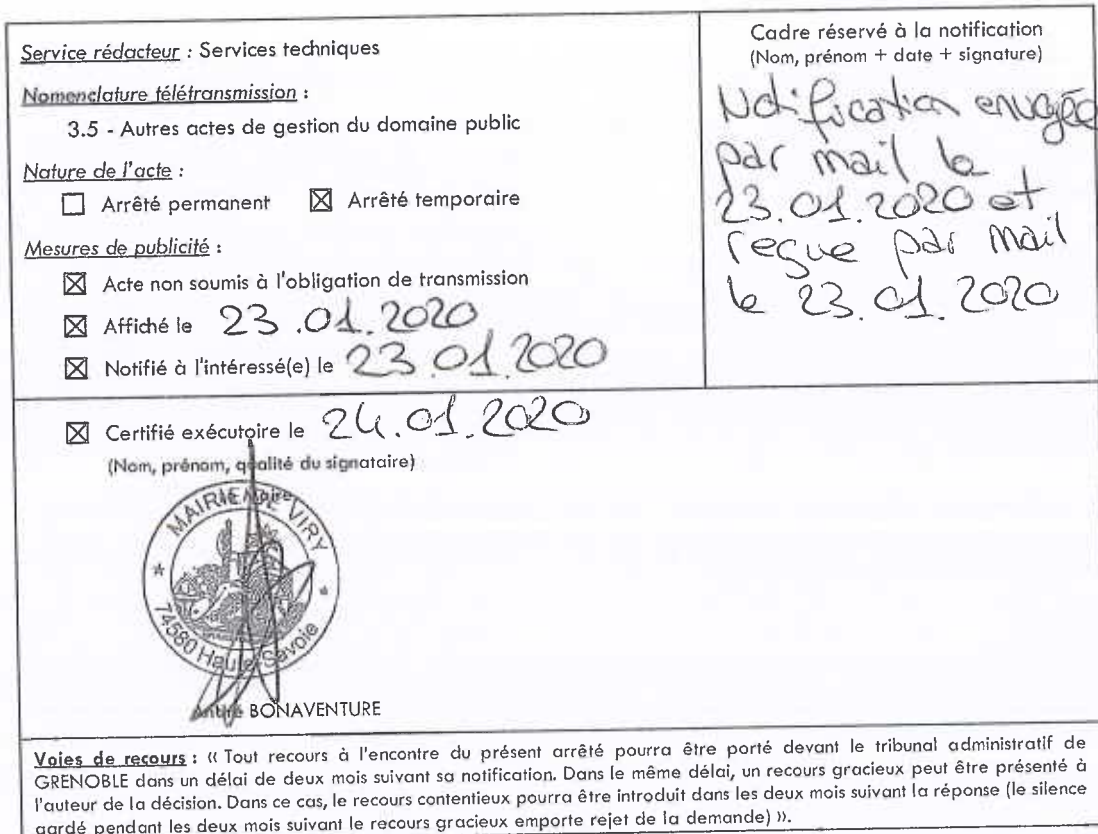 Service rédacteur : Services techniques
Nomenclature télétransmission :
3.5 - Autres actes de gestion du domaine public
Nature de l'acte :
☐ Arrêté permanent ☒ Arrêté temporaire
Mesures de publicité :
☒ Acte non soumis à l'obligation de transmission
☒ Affiché le 23.01.2020
☒ Notifié à l'intéressé(e) le 23.01.2020
Cadre réservé à la notification
(Nom, prénom + date + signature)
Notification envoyée
par mail le
23.01.2020 et
reçue par mail
le 23.01.2020
☒ Certifié exécutoire le 24.01.2020
(Nom, prénom, qualité du signataire)
MAIRIE DE VIRY
74580 Haute-Savoie
André BONAVENTURE
Voies de recours : « Tout recours à l'encontre du présent arrêté pourra être porté devant le tribunal administratif de
GRENOBLE dans un délai de deux mois suivant sa notification. Dans le même délai, un recours gracieux peut être présenté à
l'auteur de la décision. Dans ce cas, le recours contentieux pourra être introduit dans les deux mois suivant la réponse (le silence
gardé pendant les deux mois suivant le recours gracieux emporte rejet de la demande) ».